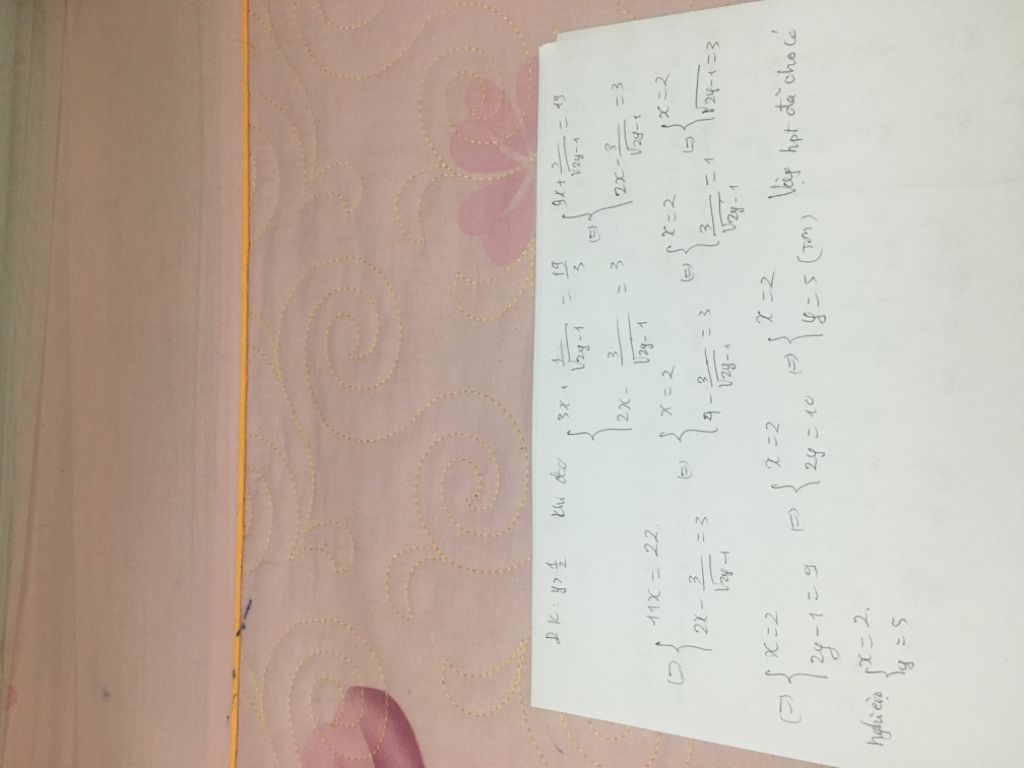 ĐK: y > 1/2 Khi đó { 3x + 1/√(2y-1) = 19/3 ; 2x - 3/√(2y-1) = 3 (=) { 9x + 3/√(2y-1) = 19 ; 2x - 3/√(2y-1) = 3
(=) { 11x = 22 ; 2x - 3/√(2y-1) = 3 (=) { x = 2 ; 4 - 3/√(2y-1) = 3 (=) { x = 2 ; 3/√(2y-1) = 1 (=) { x = 2 ; √(2y-1) = 3
(=) { x = 2 ; 2y - 1 = 9 (=) { x = 2 ; 2y = 10 (=) { x = 2 ; y = 5 (TM) Vậy hpt đã cho có
nghiệm { x = 2 ; y = 5